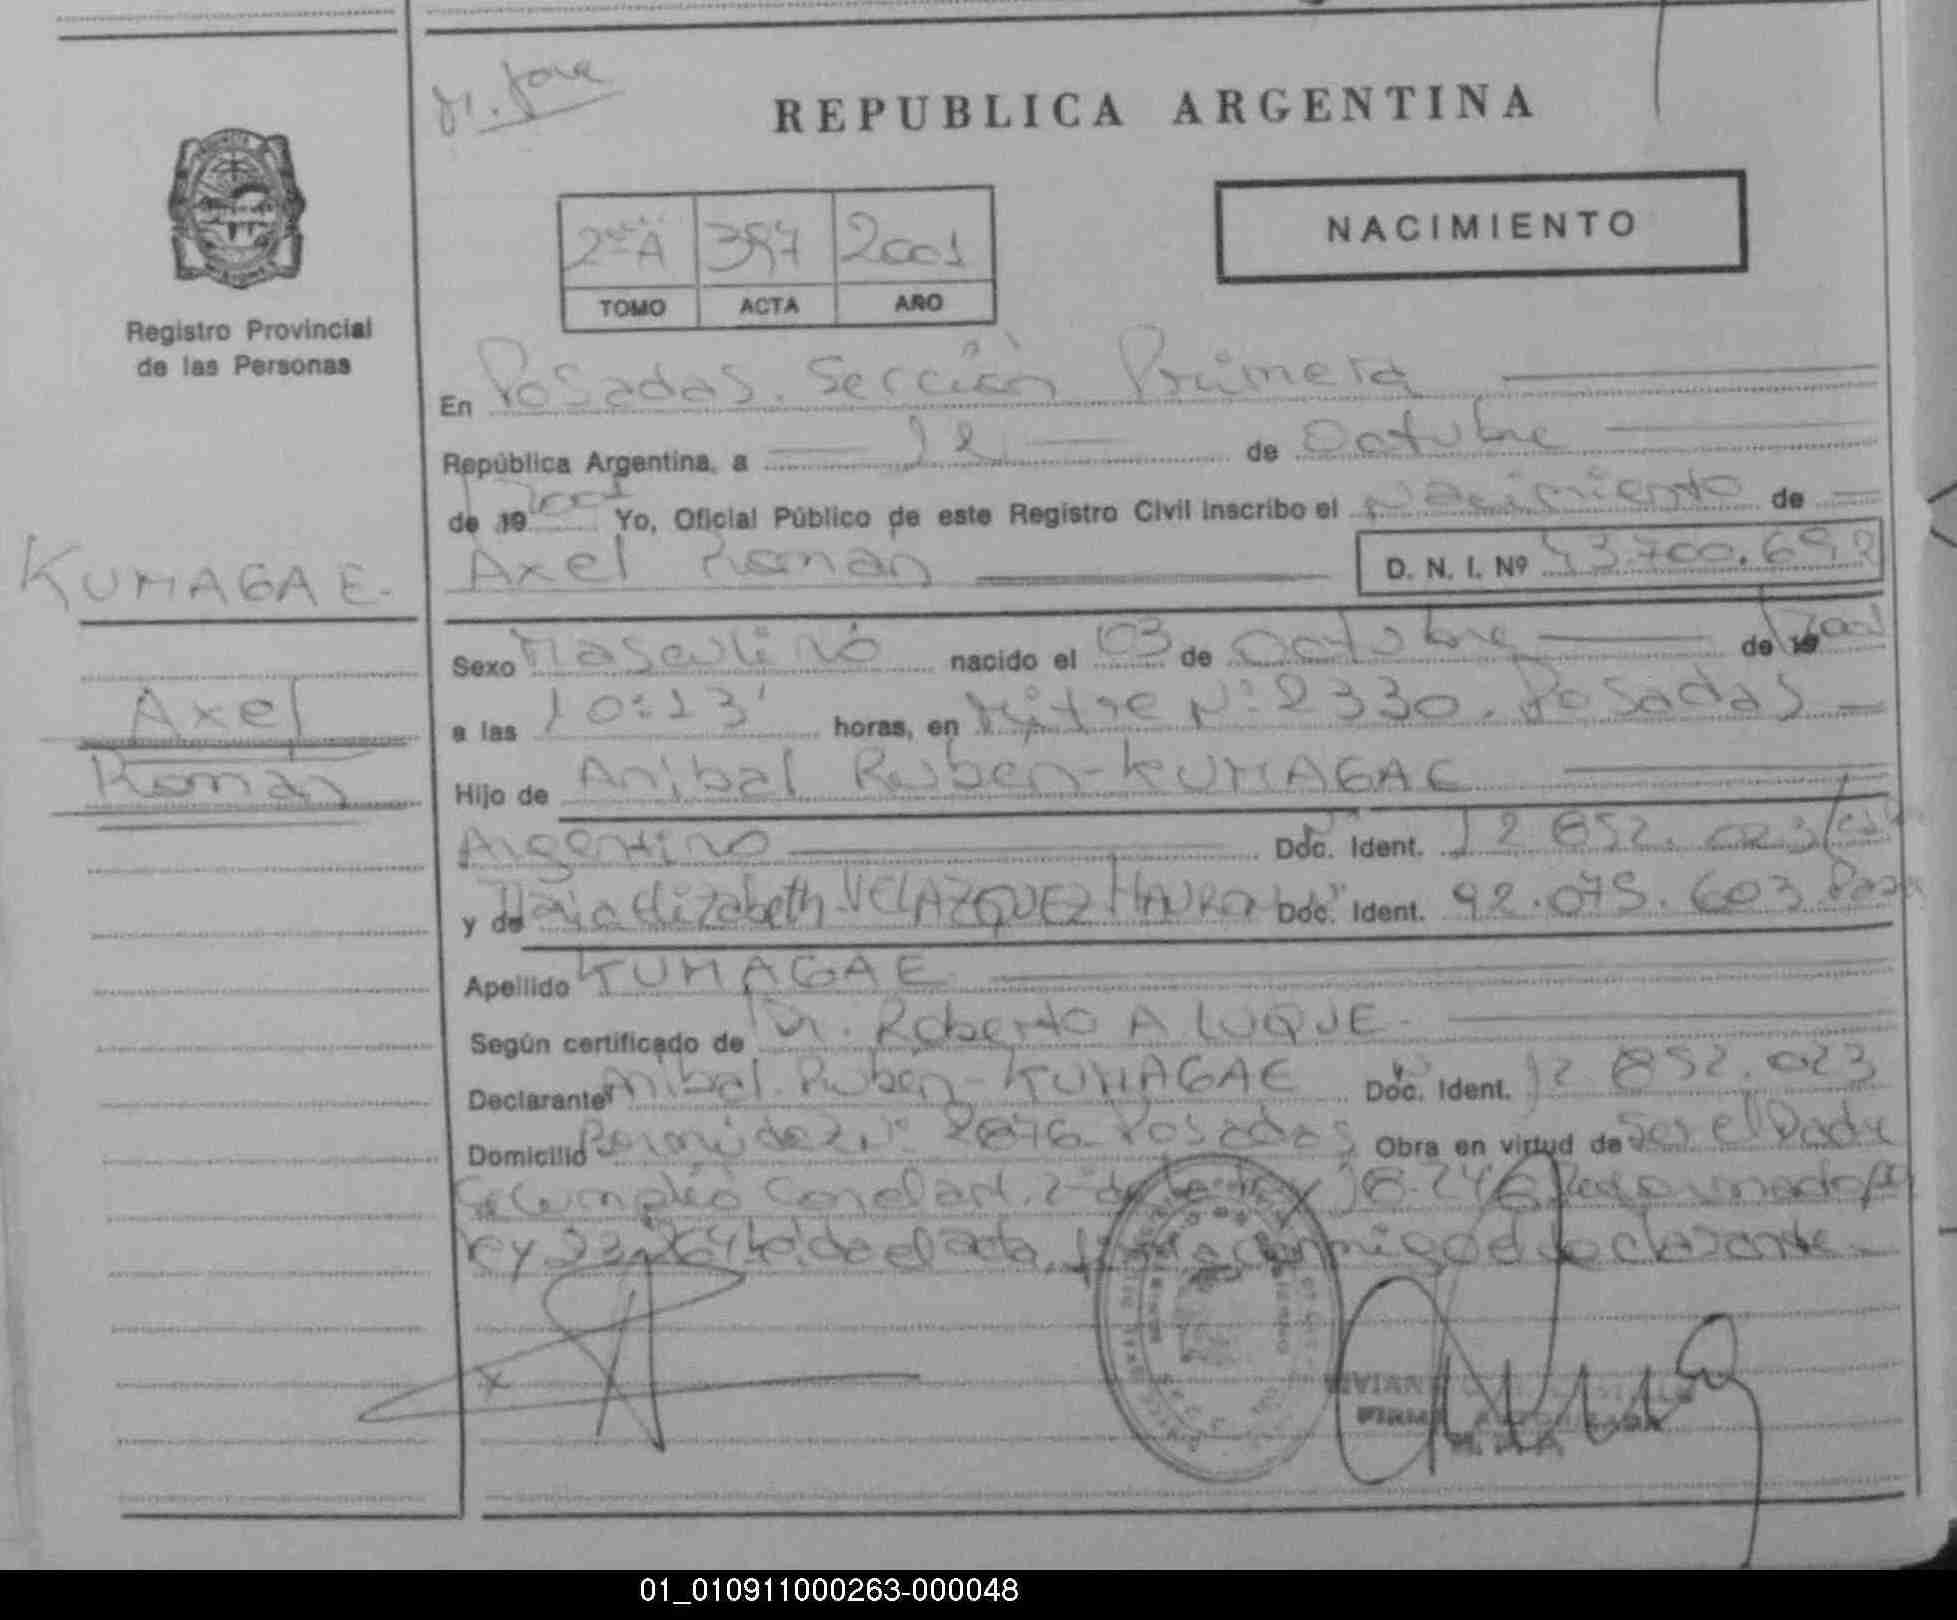 REPUBLICA ARGENTINA
NACIMIENTO
2 A 397 2001
TOMO ACTA AÑO
Registro Provincial
de las Personas
En Posadas. Sección Primera
República Argentina, a 12 de Octubre
de 19 2001 Yo, Oficial Público de este Registro Civil inscribo el Nacimiento de
KUMAGAE.
Axel Roman D. N. I. Nº 43.700.692
Sexo Masculino nacido el 03 de Octubre de 19 2001
Axel
Roman
a las 10:13' horas, en Mitre Nº 2330. Posadas
Hijo de Anibal Ruben-KUMAGAE
Argentino Doc. Ident. 12 852. 023
y de Maria Elizabeth VELAZQUEZ Doc. Ident. 92.075.603
Apellido KUMAGAE
Según certificado de Dr. Roberto A LUQUE.
Declarante Anibal Ruben-KUMAGAE Doc. Ident. 12 852.023
Domicilio Bermúdez Nº 2876 Posadas Obra en virtud de Ser el Padre
Se Cumplió Con el art. 2 18.248
ley 23.264 Leida el acta, conmigo el declarante.
FIRMA AUTORIZADA
01_010911000263-000048